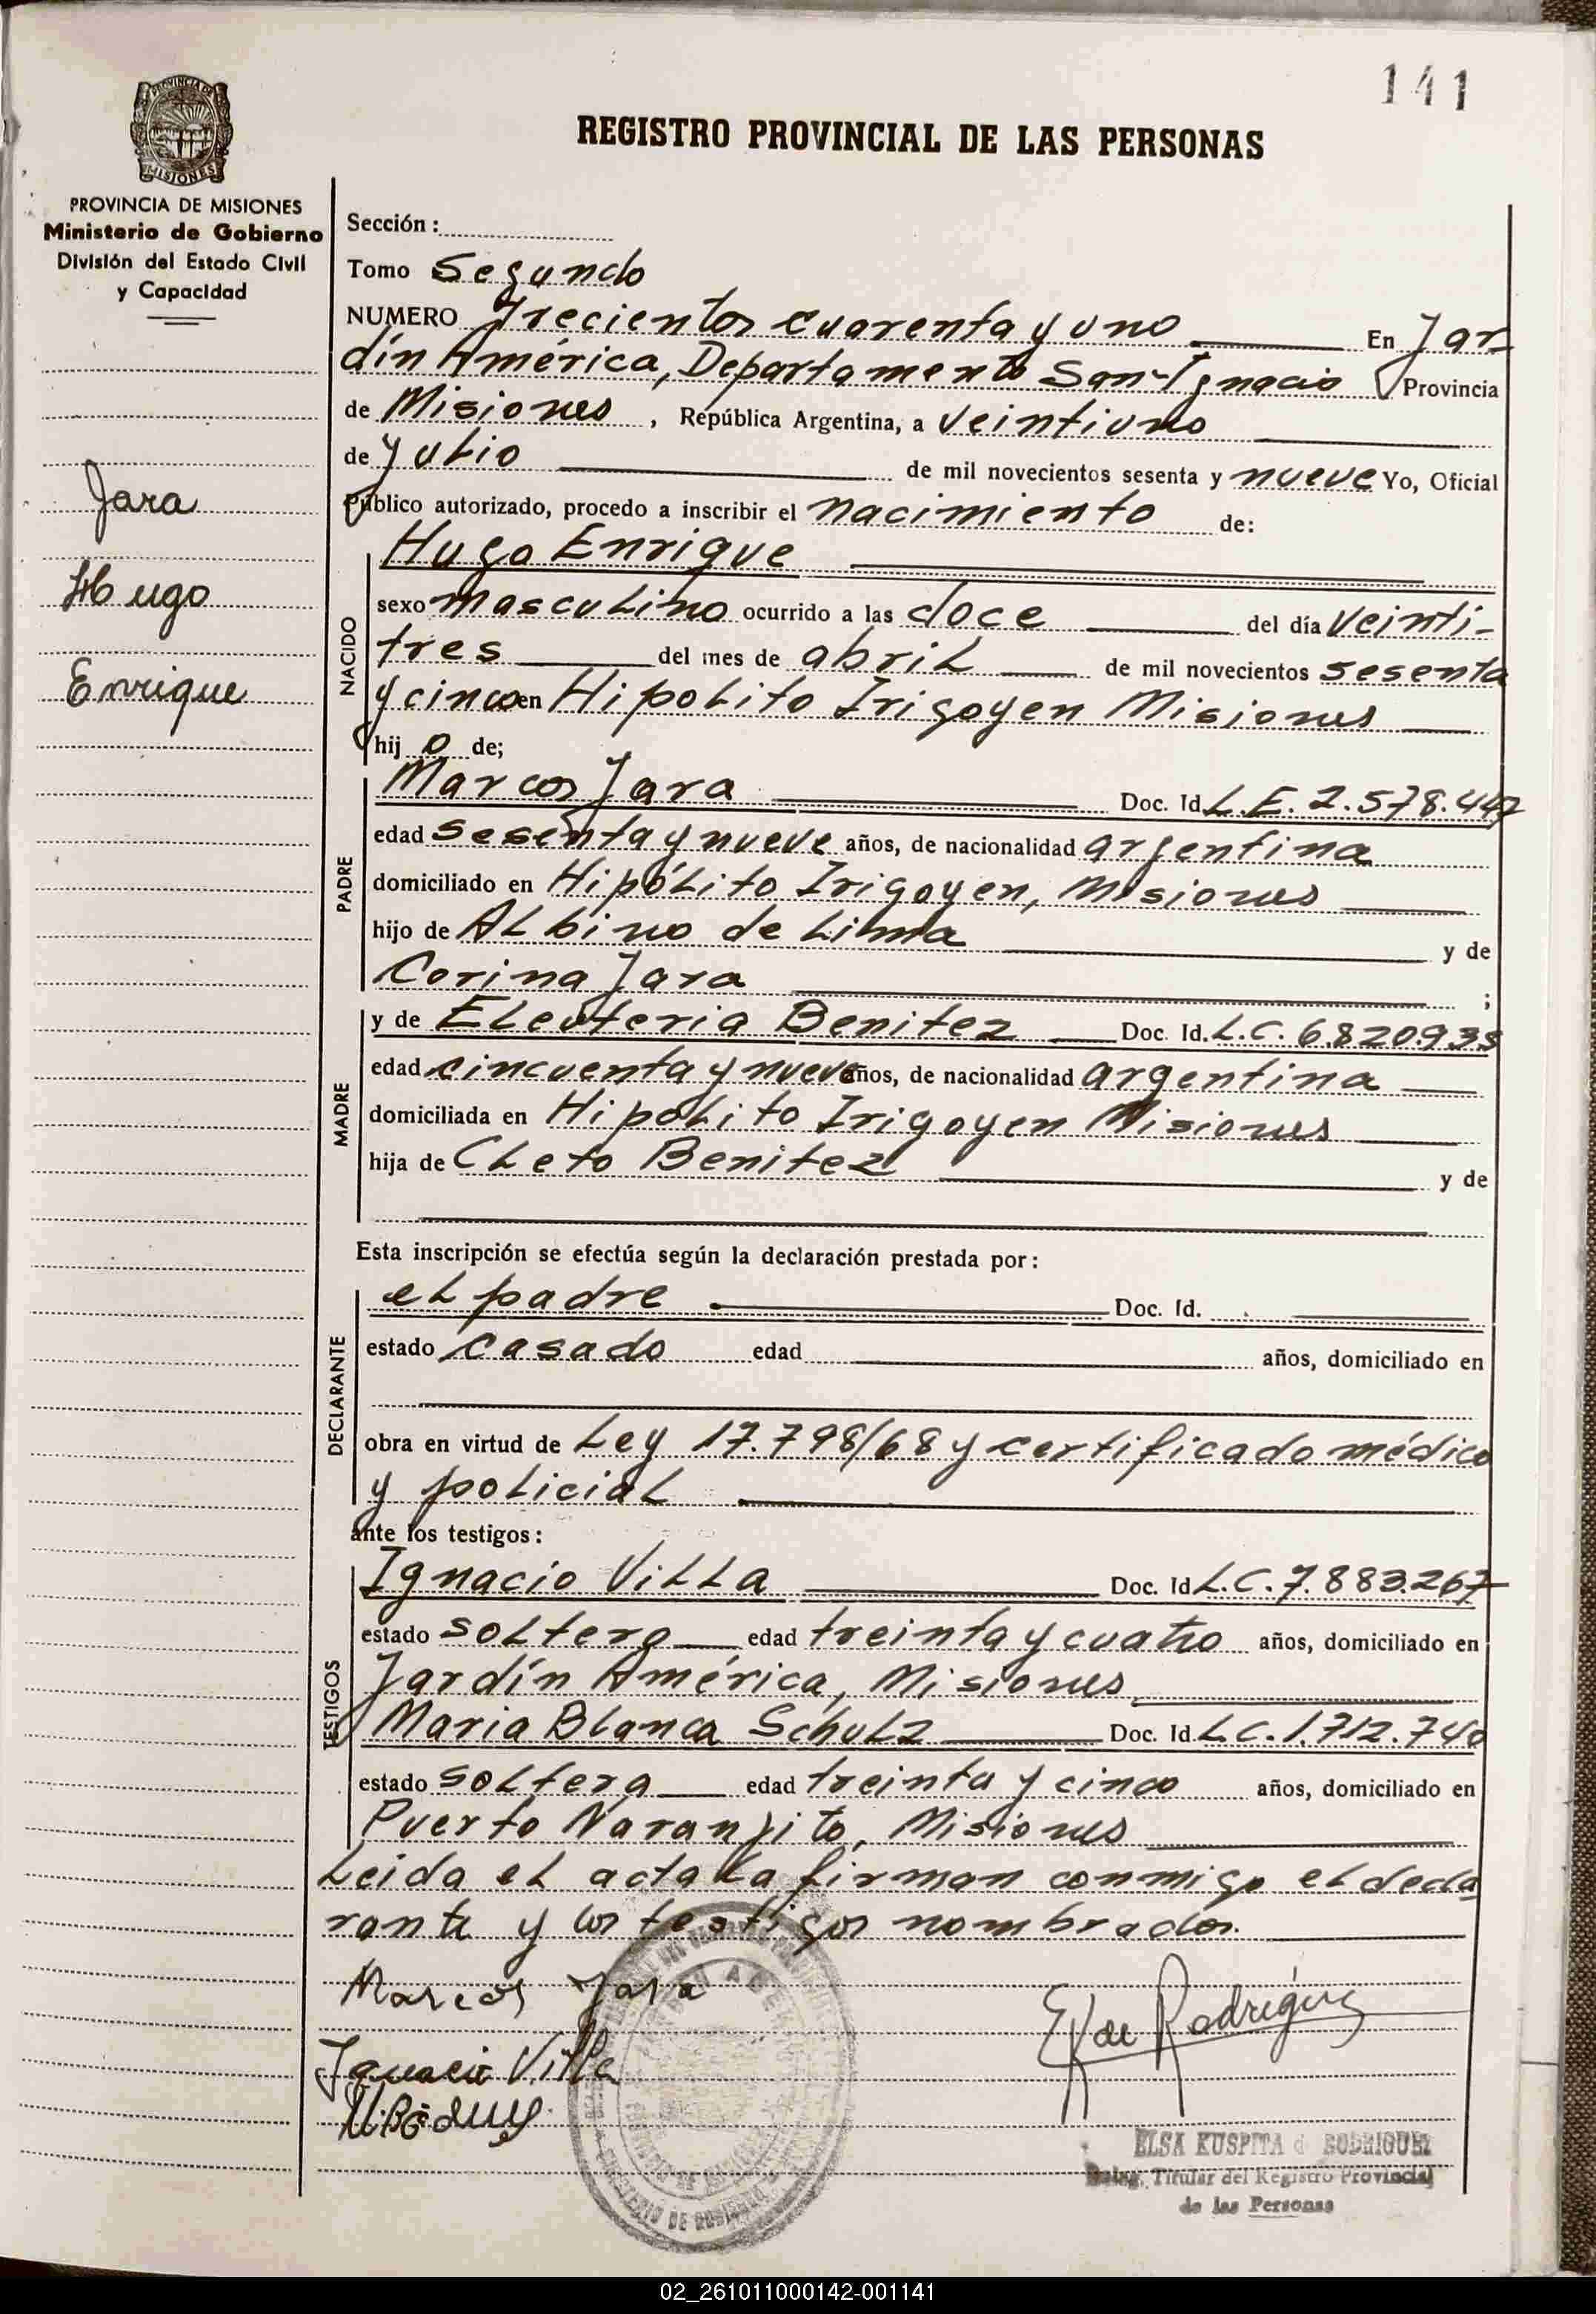 141
REGISTRO PROVINCIAL DE LAS PERSONAS
PROVINCIA DE MISIONES
Ministerio de Gobierno
División del Estado Civil
y Capacidad
Jara
Hugo
Enrique
Sección:
Tomo Segundo
NUMERO Trecientos cuarenta y uno En Jar
dín América, Departamento San Ignacio Provincia
de Misiones, República Argentina, a veintiuno
de Julio de mil novecientos sesenta y nueve Yo, Oficial
Público autorizado, procedo a inscribir el nacimiento de:
NACIDO
Hugo Enrique
sexo masculino ocurrido a las doce del día veinti-
tres del mes de abril de mil novecientos sesenta
y cinco en Hipolito Irigoyen Misiones
hijo de;
PADRE
Marcos Jara Doc. Id. L.E. 2.578.447
edad sesenta y nueve años, de nacionalidad argentina
domiciliado en Hipólito Irigoyen, Misiones
hijo de Albino de Lima y de
Corina Jara ;
MADRE
y de Eleuteria Benitez Doc. Id. L.C. 6.820.935
edad cincuenta y nueve años, de nacionalidad argentina
domiciliada en Hipolito Irigoyen Misiones
hija de Cleto Benitez y de
Esta inscripción se efectúa según la declaración prestada por:
DECLARANTE
el padre Doc. Id.
estado casado edad años, domiciliado en
obra en virtud de Ley 17.798/68 y certificado médico
y policial
ante los testigos:
TESTIGOS
Ignacio Villa Doc. Id. L.C. 7.883.267
estado soltero edad treinta y cuatro años, domiciliado en
Jardín América, Misiones
Maria Blanca Schulz Doc. Id. L.C. 1.712.740
estado soltera edad treinta y cinco años, domiciliado en
Puerto Naranjito, Misiones
Leida el acta la firman conmigo el decla
rante y los testigos nombrados.
Marcos Jara
Ignacio Villa
E K de Rodríguez
ELSA KUSPITA d RODRIGUEZ
Deleg. Titular del Registro Provincial
de las Personas
02_261011000142-001141